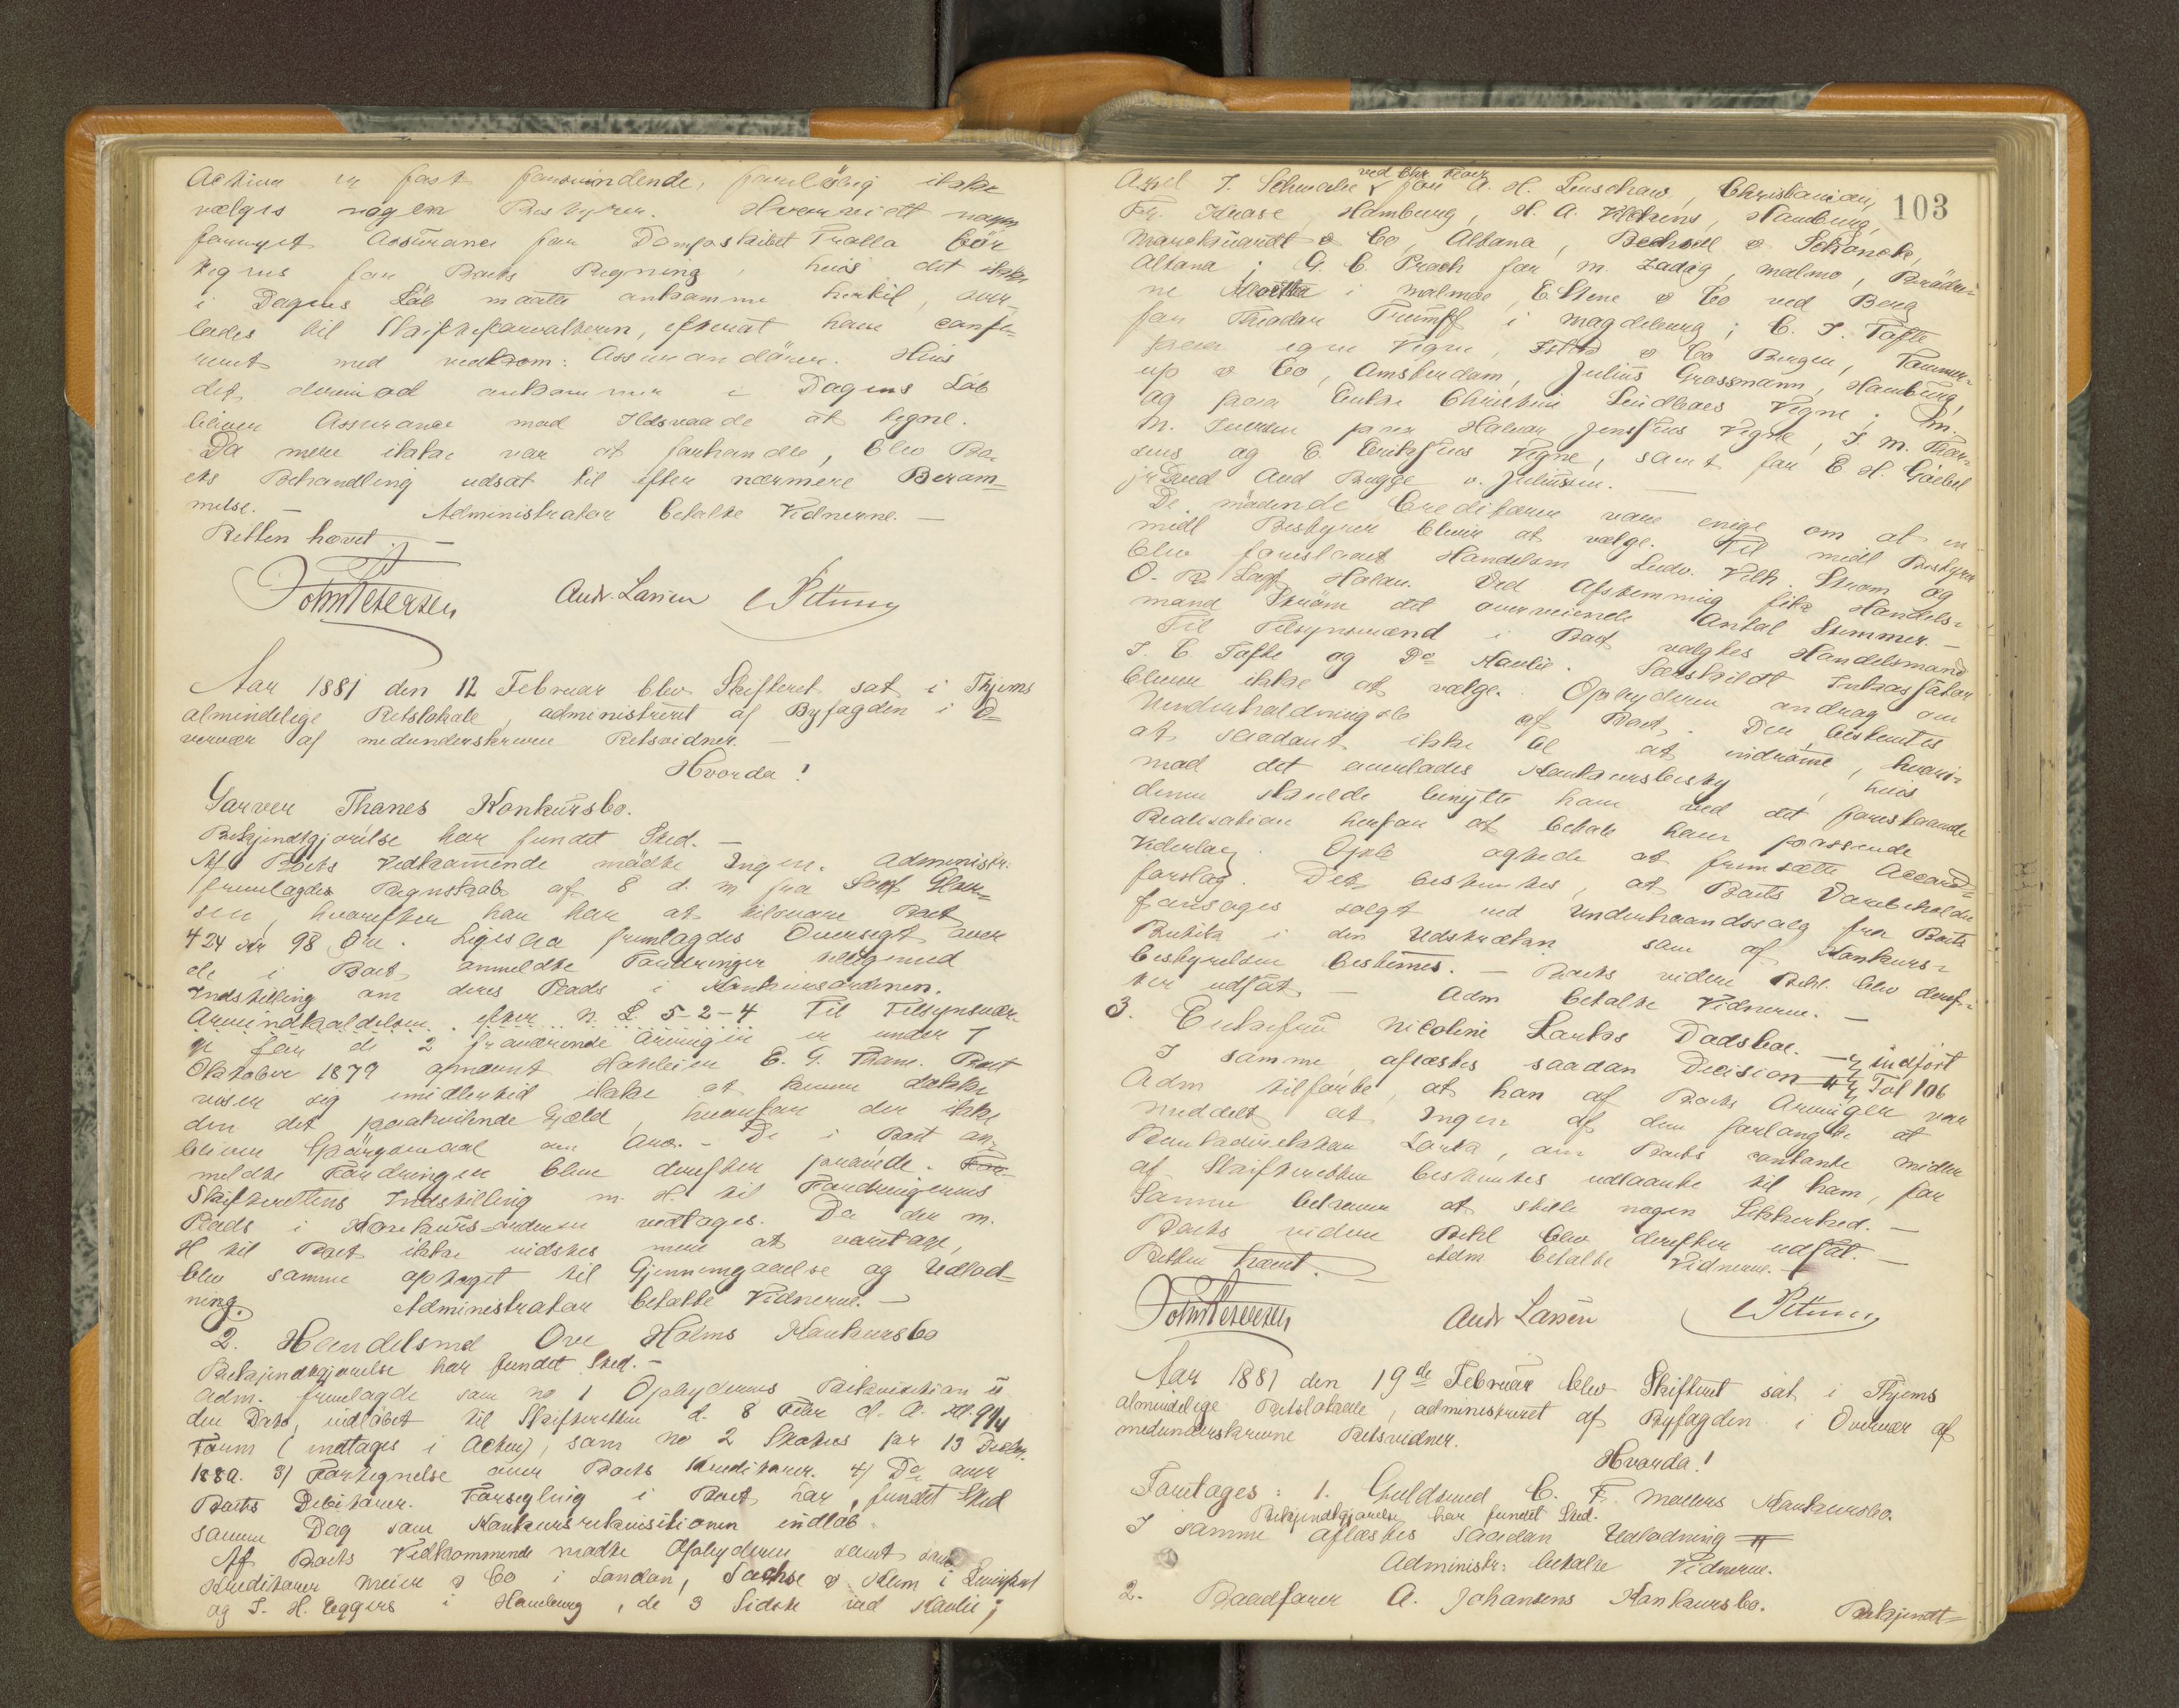 Activa er fast forsvindende, foreløbig ikke
vælges nogen Bestyrer. Hvorvidt nogen
fornyet Assurance for Dampskibet Tralla bör
tegnes for Boets Regning, hvis det ikke
i Dagens Løb maatte ankomme hertil, over-
lades til Skifteforvalteren, efterat have confe-
reret med vedkom: Assurandören. Hvis
det derimod ankommer i Dagens Løb
bliver Assurance mod Ildsvaade at tegne.
Da mere ikke var at forhandle, blev Bo-
ets Behandling udsat til efter nærmere Beram-
melse. — Administrator betalte Vidnerne. —
Retten hævet. —
John Petersen Andr. Larsen
Aar 1881 den 12 Februar blev Skifteret sat i Thjems
almindelige Retslokale, administreret af Byfogden i O-
vervær af medunderskrevne Retsvidner. —
Hvorda!
Garver Thanes Konkursbo.
Bekjendtgjørelse har fundet Sted. —
Af Boets Vedkommende mødte Ingen. Administr:
fremlagdes Regnskab af 8 d. M. fra Sagf.
sen, hvorefter han har at tilsvare Boet
424 Kr 98 Øre. Ligesaa fremlagdes Oversigt over
de i Boet anmeldte Fordringer tilligemed
Indstilling om deres Plads i Konkursordenen.
Arveindkaldelsen efter N. L. 5-2-4 Til Tilsynsvær-
ge for de 2 fraværende Arvinger er under 7
Oktober 1879 opnævnt E. G. Thane. Boet
viser sig imidlertid ikke at kunne dække
den det paahvilende Gjæld, hvorfor der ikke
bliver Spörgsmaal om Arv. — De i Boet an-
meldte Fordringer blev derefter prøvede.
Skifterettens Indstilling m. H. til Fordringernes
Plads i Konkurs-ordenen vedtages. Da der m.
H til Boet ikke vidstes mere at varetage,
blev samme optaget til Gjennemgaaelse og Udlod-
ning. Administrator betalte Vidnerne. —
2. Handelsmd Ove Holms Konkursbo
Bekjendtgjørelse har fundet Sted. —
Adm. fremlagde som No 1 Opbyderens Rekvisition u
den Dato, indløbet til Skifteretten d. 8 Febr d. A. Kl. 9 1/4
Form (indtages i Acten), som No 2 Status pr 13 Decbr.
1880. 3) Fortegnelse over Boets Kreditorer. 4) Do over
Boets Debitorer. Forsegling i Boet har fundet Sted
samme Dag som Konkursrekvisitionen indløb.
Af Boets Vedkommende mødte Opbyderen samt
Kreditorer Meier & Co i London, Sachse & Klem i
og J. H. Eggers i Hamburg, de 3 Sidste ved Kavlie;
103
ved Chr. Koren
Axel T. Schwalie for A. H. Lenschow, Christiania,
Fr. Kruse Hamburg, H. A. Hamburg,
Marckuardt & Co, Altona, & Schönck,
Altona; G. C. Prach for M. Zadig, Malmø, Brødre-
ne i Malmøe, E. Stene & Co ved Berg
for Theodor Trumpf i Magdeburg; C. J. Tofte
paa egne Vegne, & Co Bergen,
up & Co, Amsterdam, Julius Grossmann, Hamburg,
og paa Enke Christine Lindboes Vegne; M.
M. Iversen paa Halvor Jensens Vegne, J. M. Thor-
sens og E. Eriksens Vegne, samt for E. H. Göebel
jr ved Aud Bugge v. Juliussen. —
De mødende Creditorer vare enige om at en
midl Bestyrer bliver at vælge. Til midl Bestyrer
blev foreslaaet Handelsm Ludv. Vilh. Strøm og
O. R. Sagf Holan. Ved Afstemning fik Handels-
mand Strøm det overveiende Antal Stemmer. —
Til Tilsynsmænd i Boet valgtes Handelsmand
J. C. Tofte og Do Kavlie. Særskildt Inkassator
bliver ikke at vælge. Opbyderen androg om
Underholdningsb af Boet. Der besluttes
at saadant ikke bl at indrømme, hvori-
mod det overlades Konkursbesty, hvis
denne skulde benytte ham ved det forestaaende
Realisation herfor at betale ham passende
Vederlag. Opb agtede at fremsætte Accord-
forslag. Det besluttes, at Boets Varebeholdn
forsøges solgt ved Underhaandssalg fra Boets
Butik i den Udstrækn som af Konkurs-
bestyrelsen bestemes. — Boets videre Behl. blev deref-
ter udsat. — Adm betalte Vidnerne. —
3. Enkefru Nicoline Lorks Dødsbo. —
I samme aflæstes saadan Decision indført Fol 106
Adm tilførte, at han af Boets Arvinger var
meddelt at Ingen af dem forlangte at
Bankdirektør Lork, om Boets contante Midler
af Skifteretten besluttes udlaante til ham, for
Samme behøver at stille nogen Sikkerhed. —
Boets videre Behl blev derefter udsat. —
Retten hævet. Adm betalte Vidnerne. —
John Petersen Andr Larsen
Aar 1881 den 19de Februar blev Skifteret sat i Thjems
almindelige Retslokale, administreret af Byfogden i Overvær af
medunderskrevne Retsvidner.
Hvorda!
Foretages: 1. Guldsmed C. F. Møllers Konkursbo.
Bekjendtgjørelse har fundet Sted.
I samme aflæstes saadan Udlodning
Administr: betalte Vidnerne.
2. Baadfører A. Johansens Konkursbo. Bekjendt-